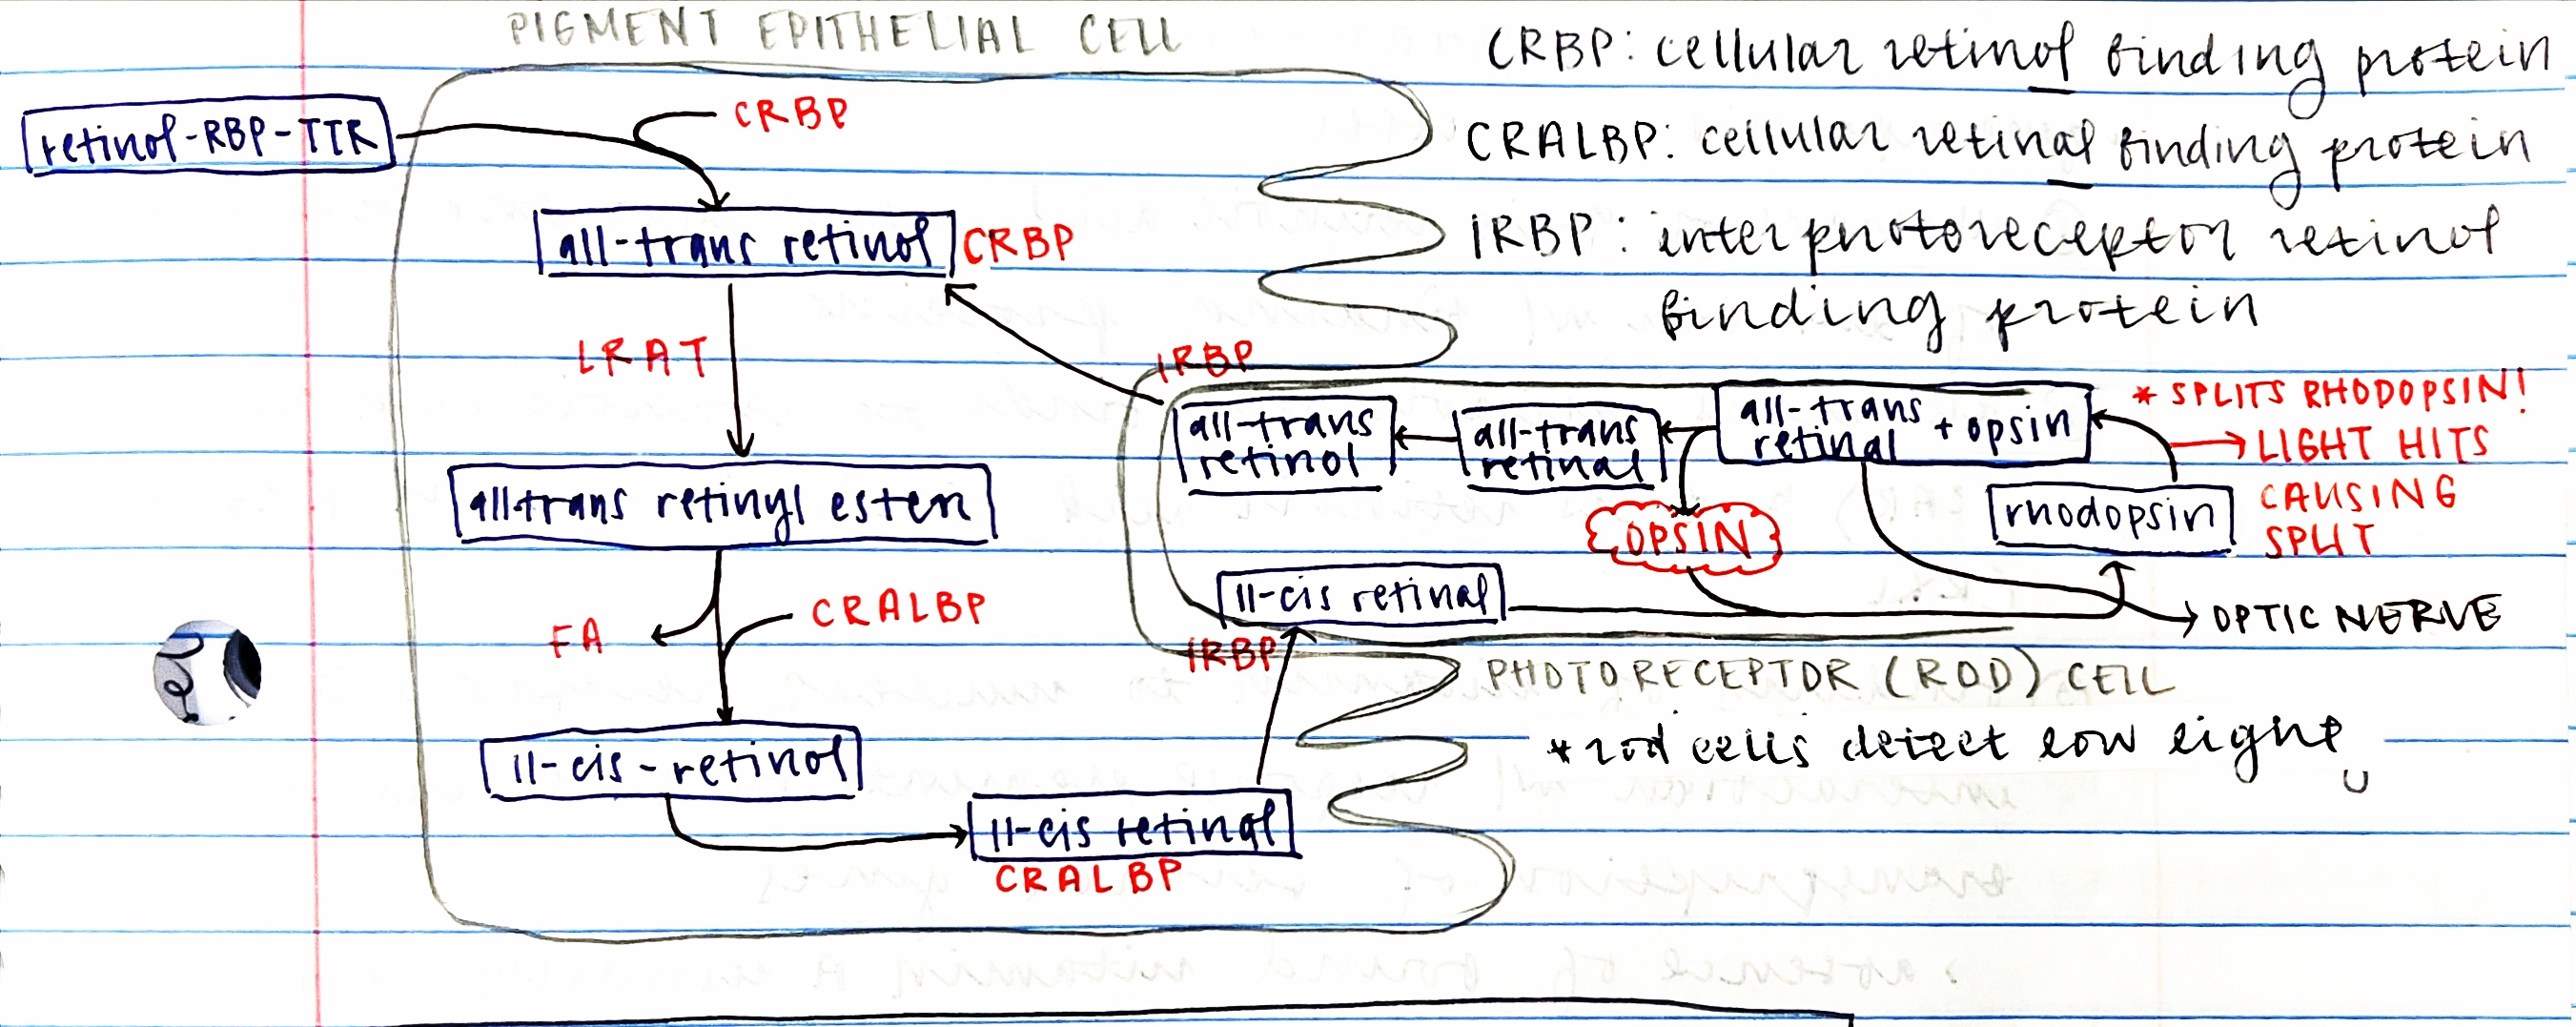 PIGMENT EPITHELIAL CELL
CRBP: cellular retinol binding protein
CRALBP: cellular retinal binding protein
IRBP: interphotoreceptor retinol
binding protein
retinol-RBP-TTR
CRBP
all-trans retinol CRBP
LRAT
IRBP
all-trans
retinol
all-trans
retinal
all-trans
retinal + opsin
* SPLITS RHODOPSIN!
LIGHT HITS
CAUSING
SPLIT
rhodopsin
OPSIN
all trans retinyl ester
11-cis retinal
OPTIC NERVE
FA
CRALBP
IRBP
PHOTORECEPTOR (ROD) CELL
* rod cells detect low light
11-cis-retinol
11-cis retinal
CRALBP